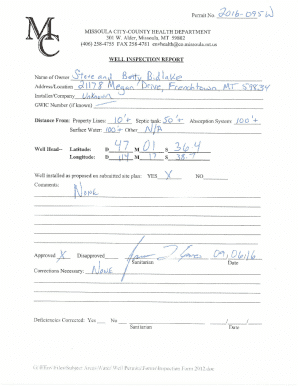 Permit No 2016-095W
MC
MISSOULA CITY-COUNTY HEALTH DEPARTMENT
301 W. Alder, Missoula, MT 59802
(406) 258-4755 FAX 258-4781 envhealth@co.missoula.mt.us
WELL INSPECTION REPORT
Name of Owner Steve and Betty Bidlake
Address/Location 21178 Megan Drive, Frenchtown MT 59834
Installer/Company Unknown
GWIC Number (if known)
Distance From: Property Lines: 10'+ Septic tank: 50'+ Absorption System: 100'+
Surface Water: 100'+ Other: N/A
Well Head-- Latitude: D 47 M 01 S 36.4
Longitude: D 114 M 17 S 38.7
Well installed as proposed on submitted site plan: YES X NO
Comments:
None
Approved X Disapproved 09/06/16
Sanitarian Date
Corrections Necessary: None
Deficiencies Corrected: Yes No / /
Sanitarian Date